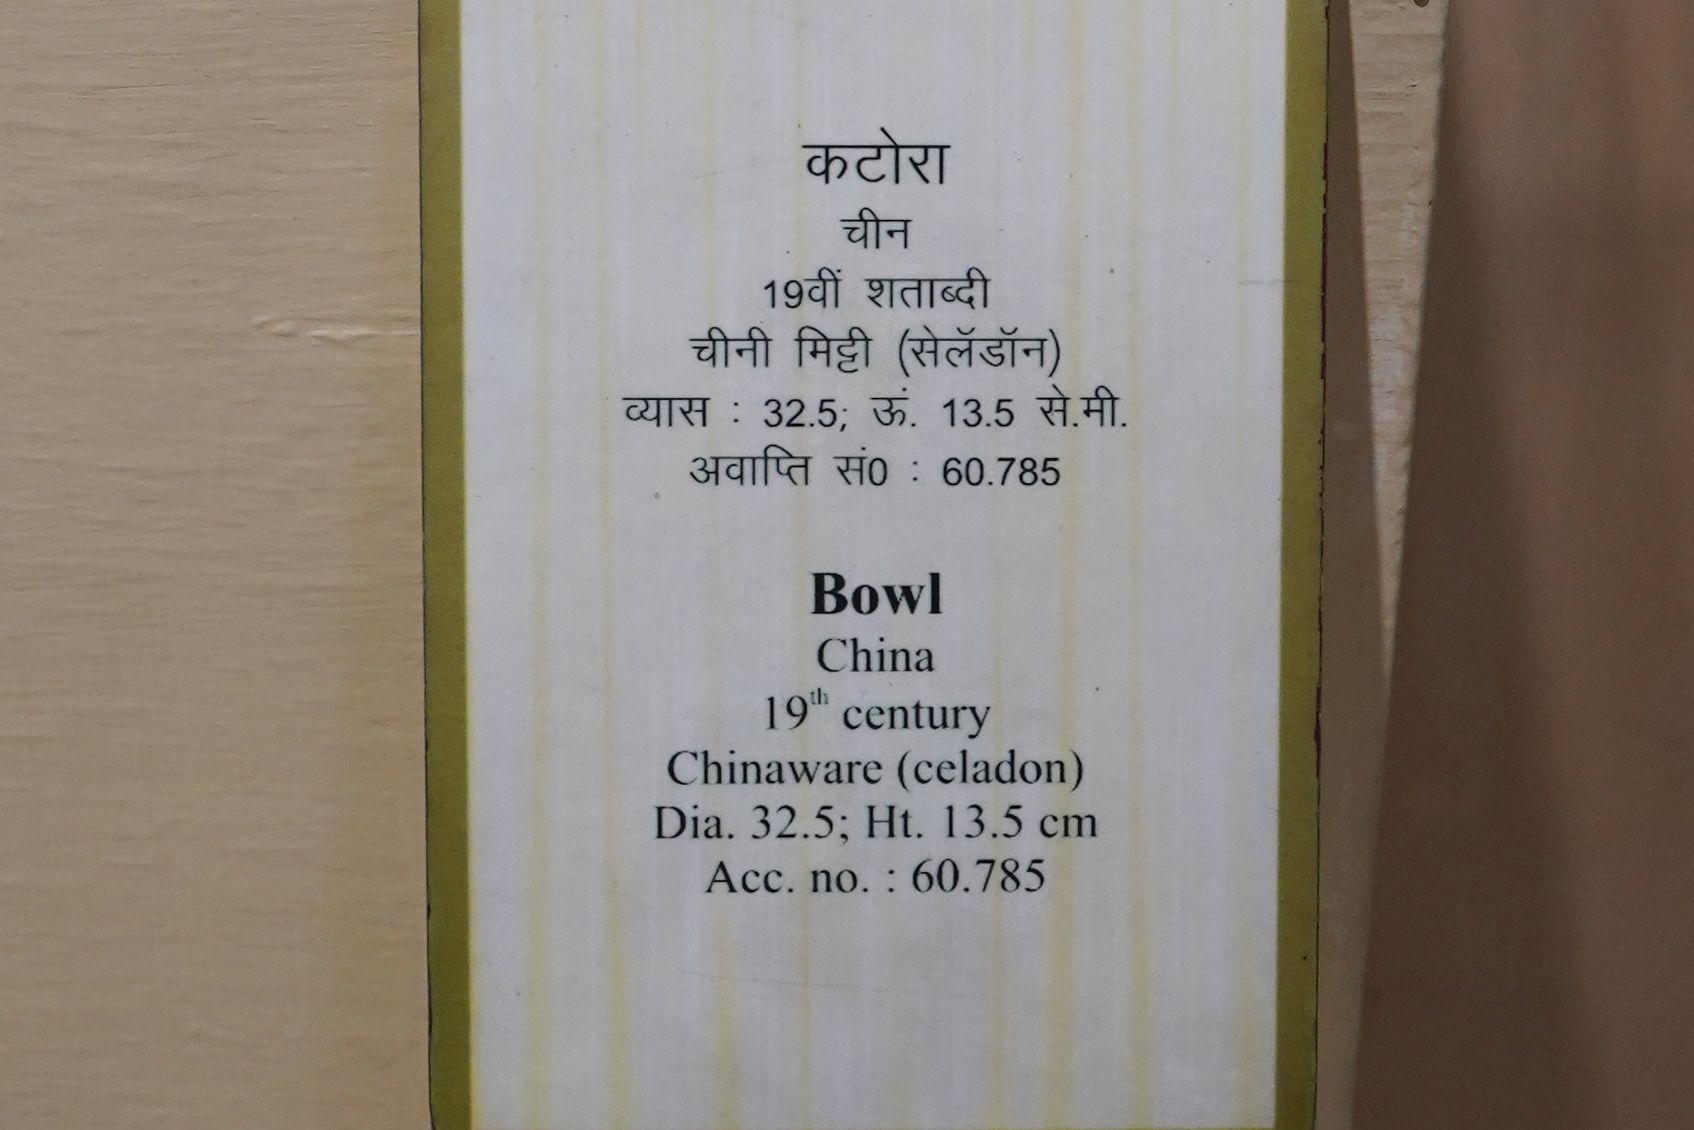 कटोरा
चीन
19वीं शताब्दी
चीनी मिट्टी (सेलॅडॉन)
व्यास : 32.5; ऊं. 13.5 से.मी.
अवाप्ति सं0 : 60.785
Bowl
China
19th century
Chinaware (celadon)
Dia. 32.5; Ht. 13.5 cm
Acc. no. : 60.785